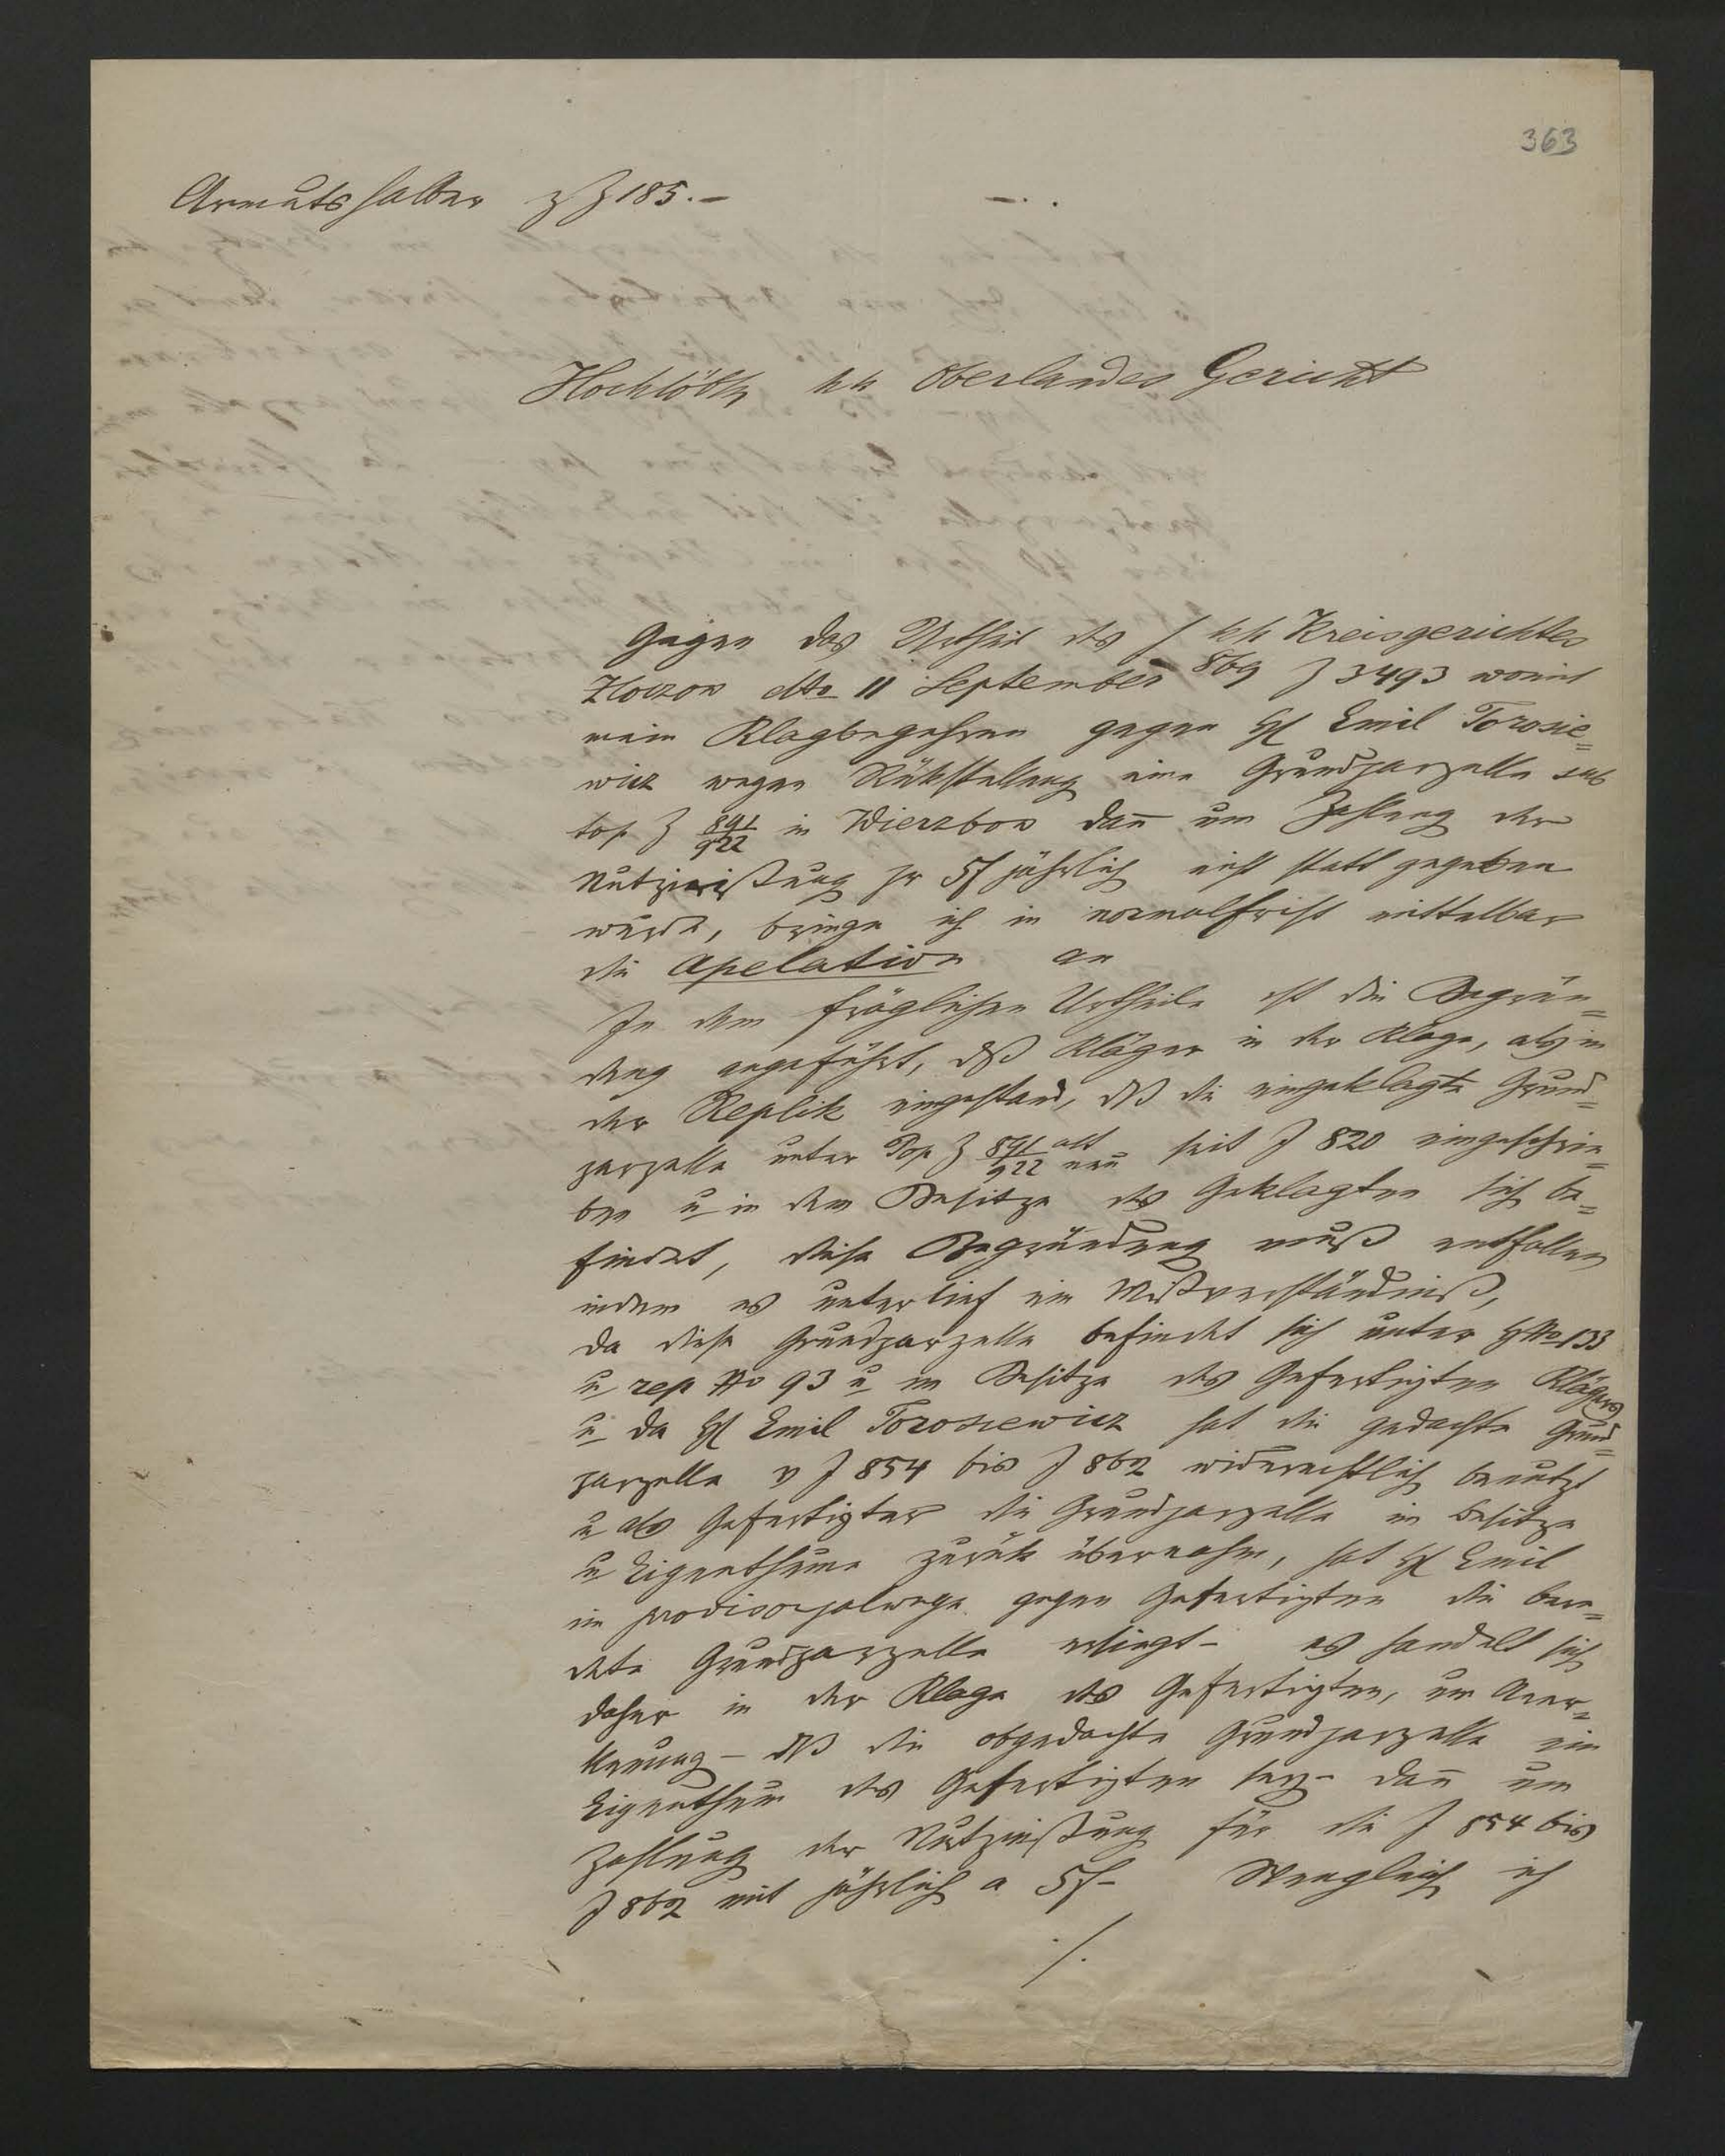 363
Armutshalber z Z 185.–
Hochlöbl kk Oberlandes Gericht
Gegen das Urtheil des kk Kreisgerichtes
Złoczow dtto 11 September 869 Z 3493 womit
mein Klagbegehren gegen H Emil Torosie=
wicz wegen Rükstellung eine Grundparzelle sub
top Z 891/922 in Wierzbow dañ um Zahlung der
Nutznießung pr 5f jährlich nicht statt gegeben
wurde, bringe ich in normalfrist mittelbar
die Apelation an
In dem fräglichen Urtheile ist die Begrün=
dung angeführt, dß Kläger in der Klage, als in
der Replik eingestand, dß die eingeklagte Grund=
parzelle unter Top Z 891/922 alt neu seit J 820 eingeschrie=
ben u in dem Besitze des Geklagten sich be=
findet, diese Begründung muß entfallen
indem es unterlief ein Mißverständniß,
da diese Grundparzelle befindet sich unter No 133
u rep No 93 u im Besitze des Gefertigten Klägers
u da H Emil Torosiewicz hat die gedachte Grund=
parzelle v J 854 bis J 862 widerrechtlich benutzt
u als Gefertigter die Grundparzelle in Besitze
u Eigenthume zurük übernahm, hat H Emil
im provisorjalwege gegen Gefertigten die bere=
dete Grundparzelle ersiegt – es handelt sich
daher in der Klage des Gefertigten, um Aner=
kenung – dß die obgedachte Grundparzelle ein
Eigenthum des Gefertigten sey – dañ um
Zahlung der Nutznießung für die J 854 bis
J 862 mit jährlich a 5f – Wengleich ich
./.